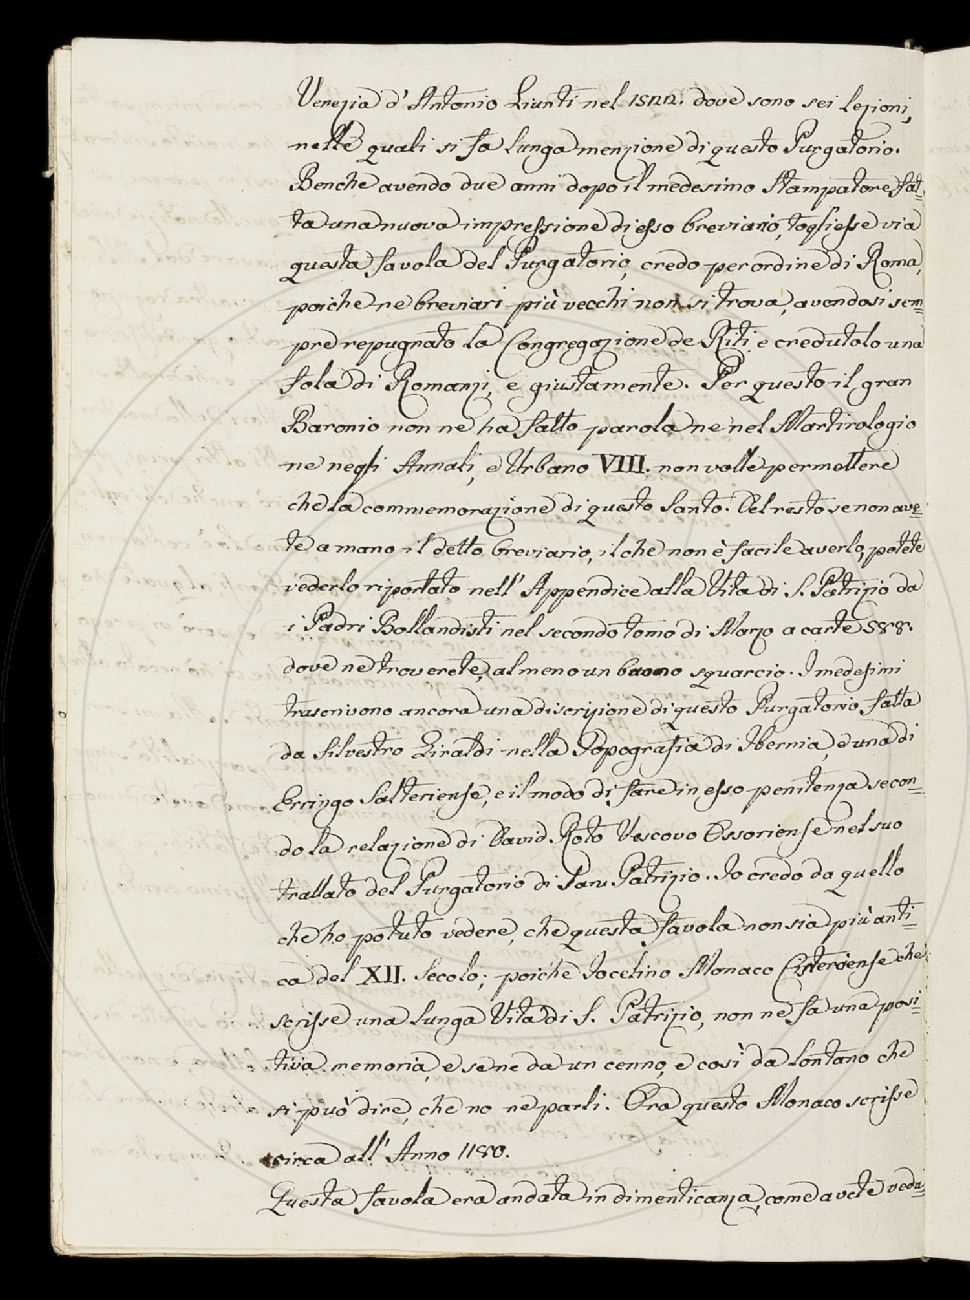 Venezia d'Antonio Giunti nel 1522. dove sono sei lezioni,
nelle quali si fa lunga menzione di questo Purgatorio.
Benche avendo due anni dopo il medesimo Stampatore fat=
ta una nuova impressione di esso breviario, togliesse via
questa favola del Purgatorio, credo per ordine di Roma,
poiche ne breviari più vecchi non si trova, avendosi sem=
pre repugnato la Congregazione de Riti e credutolo una
fola di Romanzi, e giustamente. Per questo il gran
Baronio non ne ha fatto parola ne nel Martirologio
ne negli Annali, e Urbano VIII. non volle permettere
che la commemorazione di questo Santo. Del resto se non ave=
te a mano il detto breviario, il che non è facile averlo, potete
vederlo riportato nell' Appendice alla Vita di S. Patrizio da
i Padri Bollandisti nel secondo tomo di Marzo a carte 588.
dove ne troverete, almeno un buono squarcio. I medesimi
trascrivono ancora una discrizione di questo Purgatorio fatta
da Silvestro Giraldi nella Topografia di Ibernia, d'una di
Errizgo Salteriense, e il modo di fare in esso penitenza secon=
do la relazione di David Roto Vescovo Ossoriense nel suo
trattato del Purgatorio di San Patrizio. Io credo da quello
che ho potuto vedere, che questa favola non sia più anti=
ca del XII. Secolo; poiche Jocelino Monaco Cisterciense che
scrisse una lunga Vita di S. Patrizio, non ne fa una posi=
tiva memoria, e se ne da un cenno, e così da lontano che
si può dire, che no ne parli. Ora questo Monaco scrisse
circa all' Anno 1180.
Questa favola era andata in dimenticanza, come avete vedu=